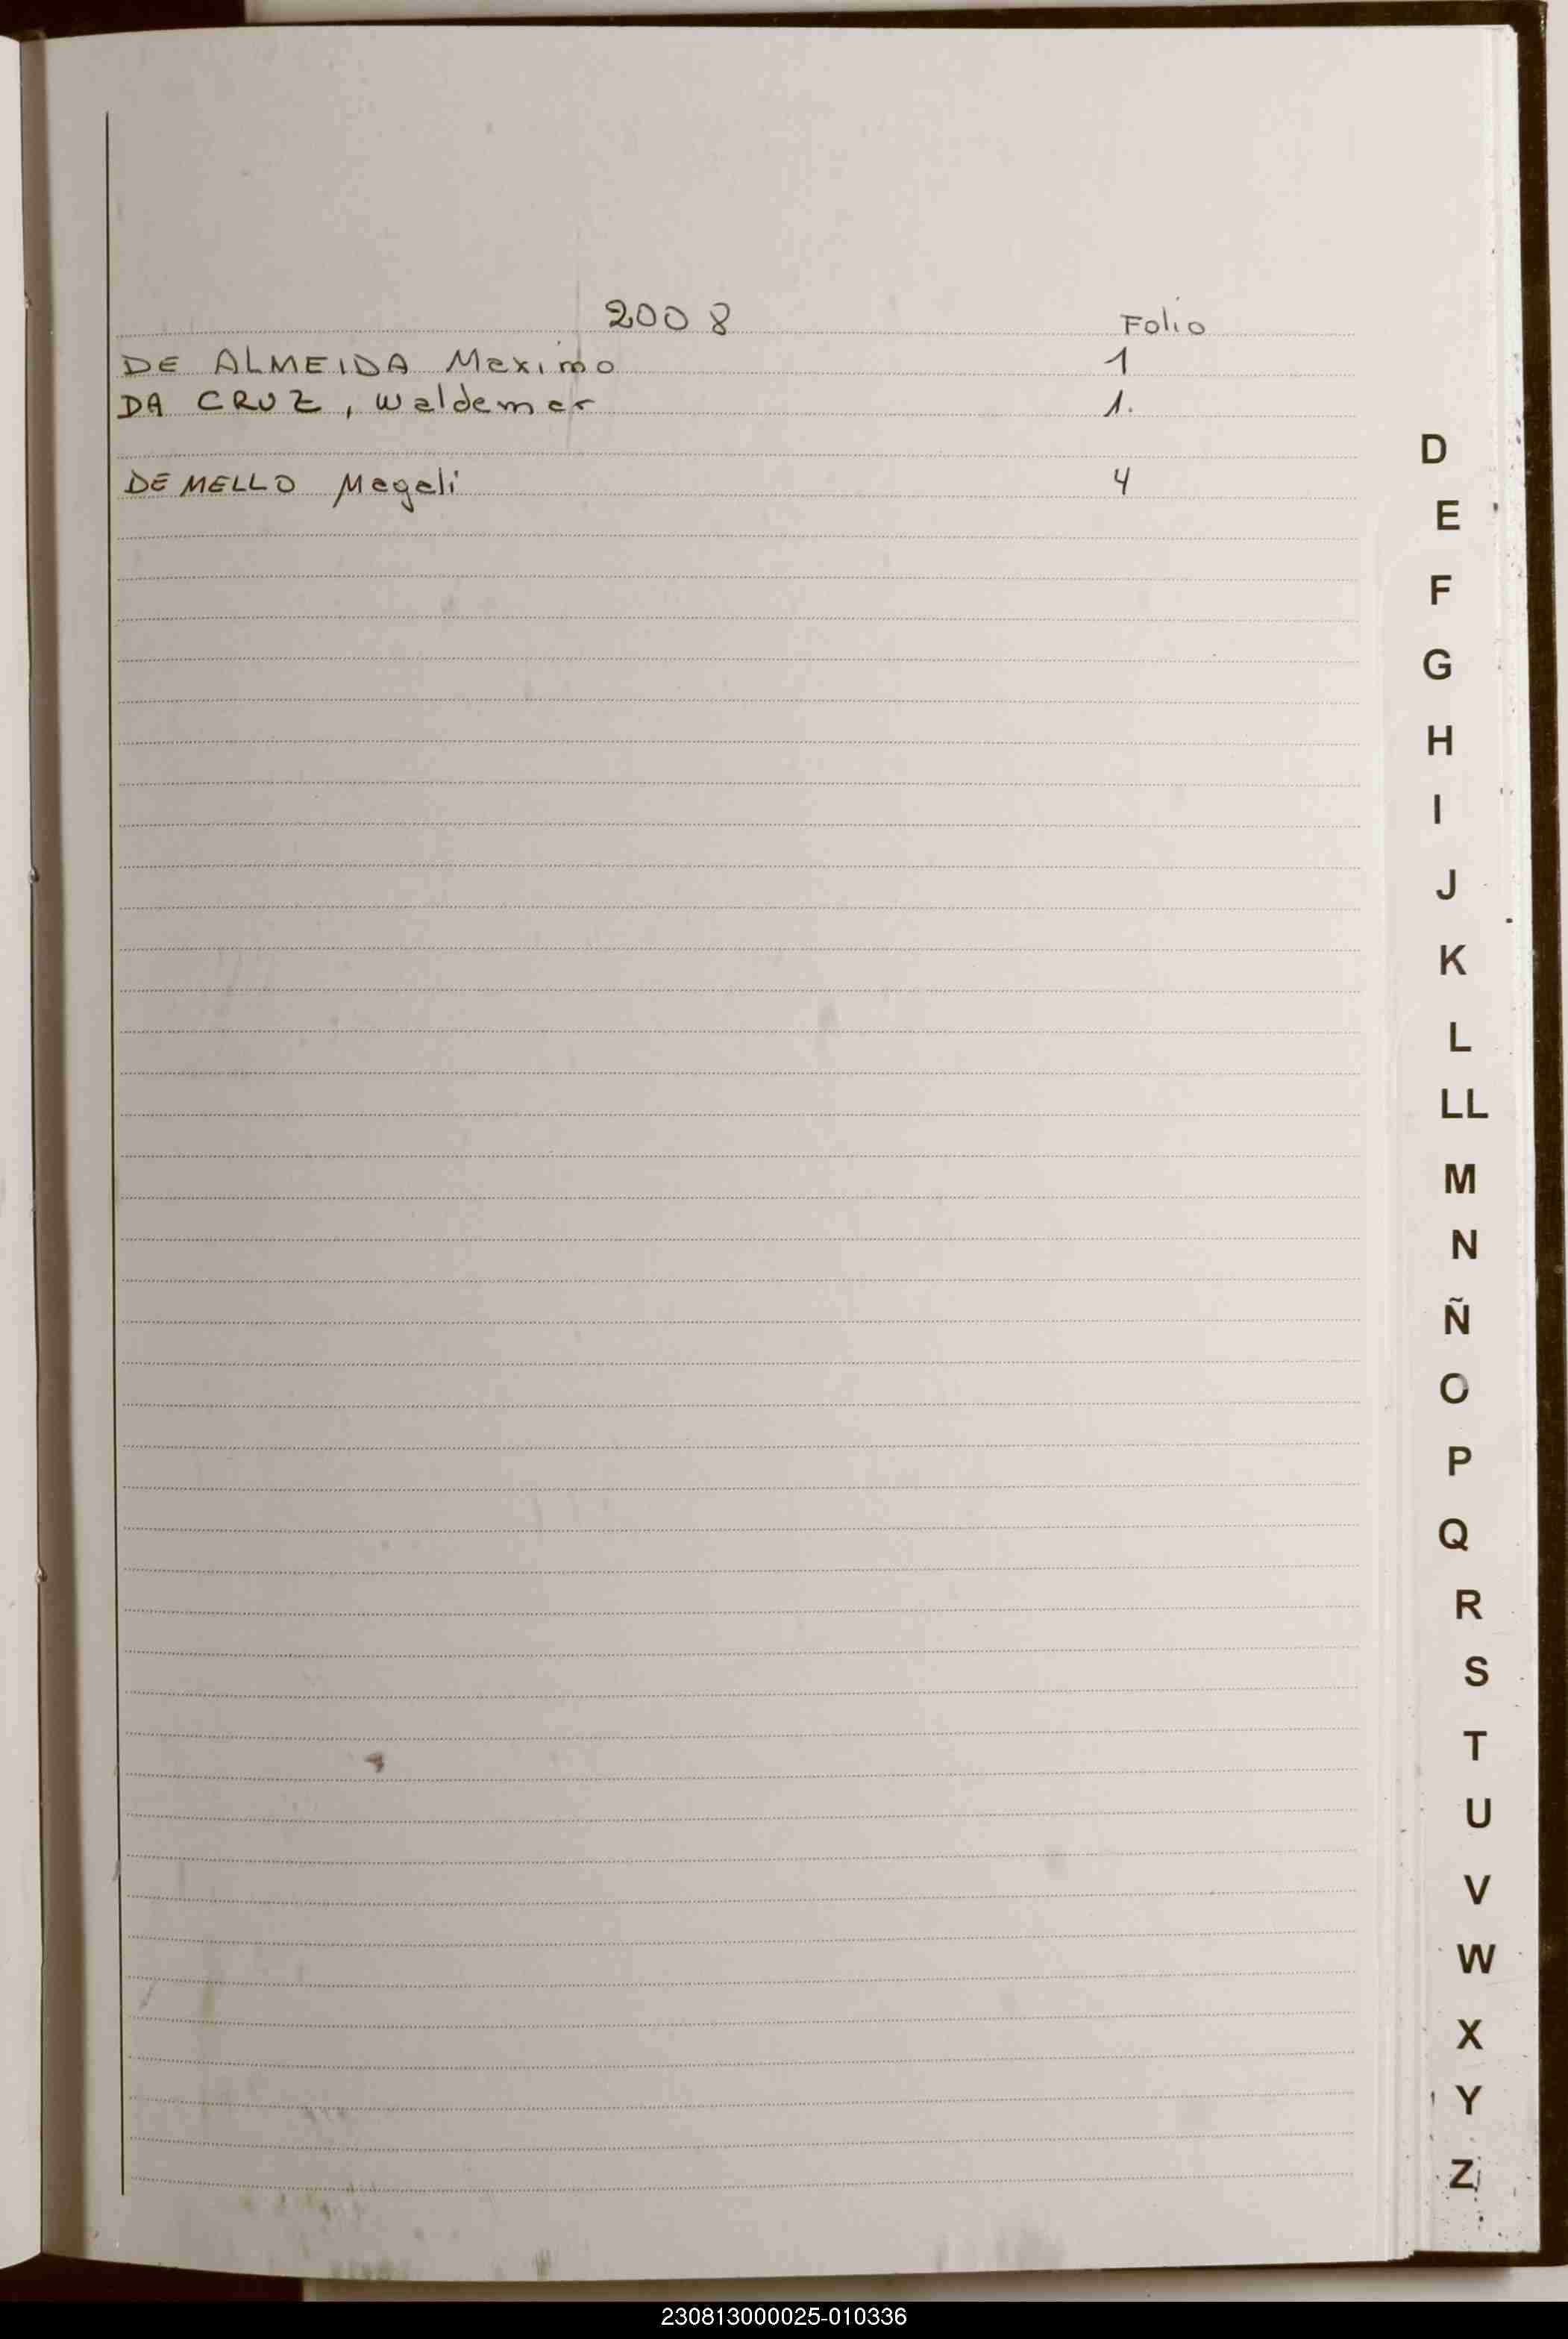 2008 Folio
DE ALMEIDA Maximo 1
DA CRUZ, Waldemar 1.
DE MELLO Magali 4
D
E
F
G
H
I
J
K
L
LL
M
N
Ñ
O
P
Q
R
S
T
U
V
W
X
Y
Z
230813000025-010336